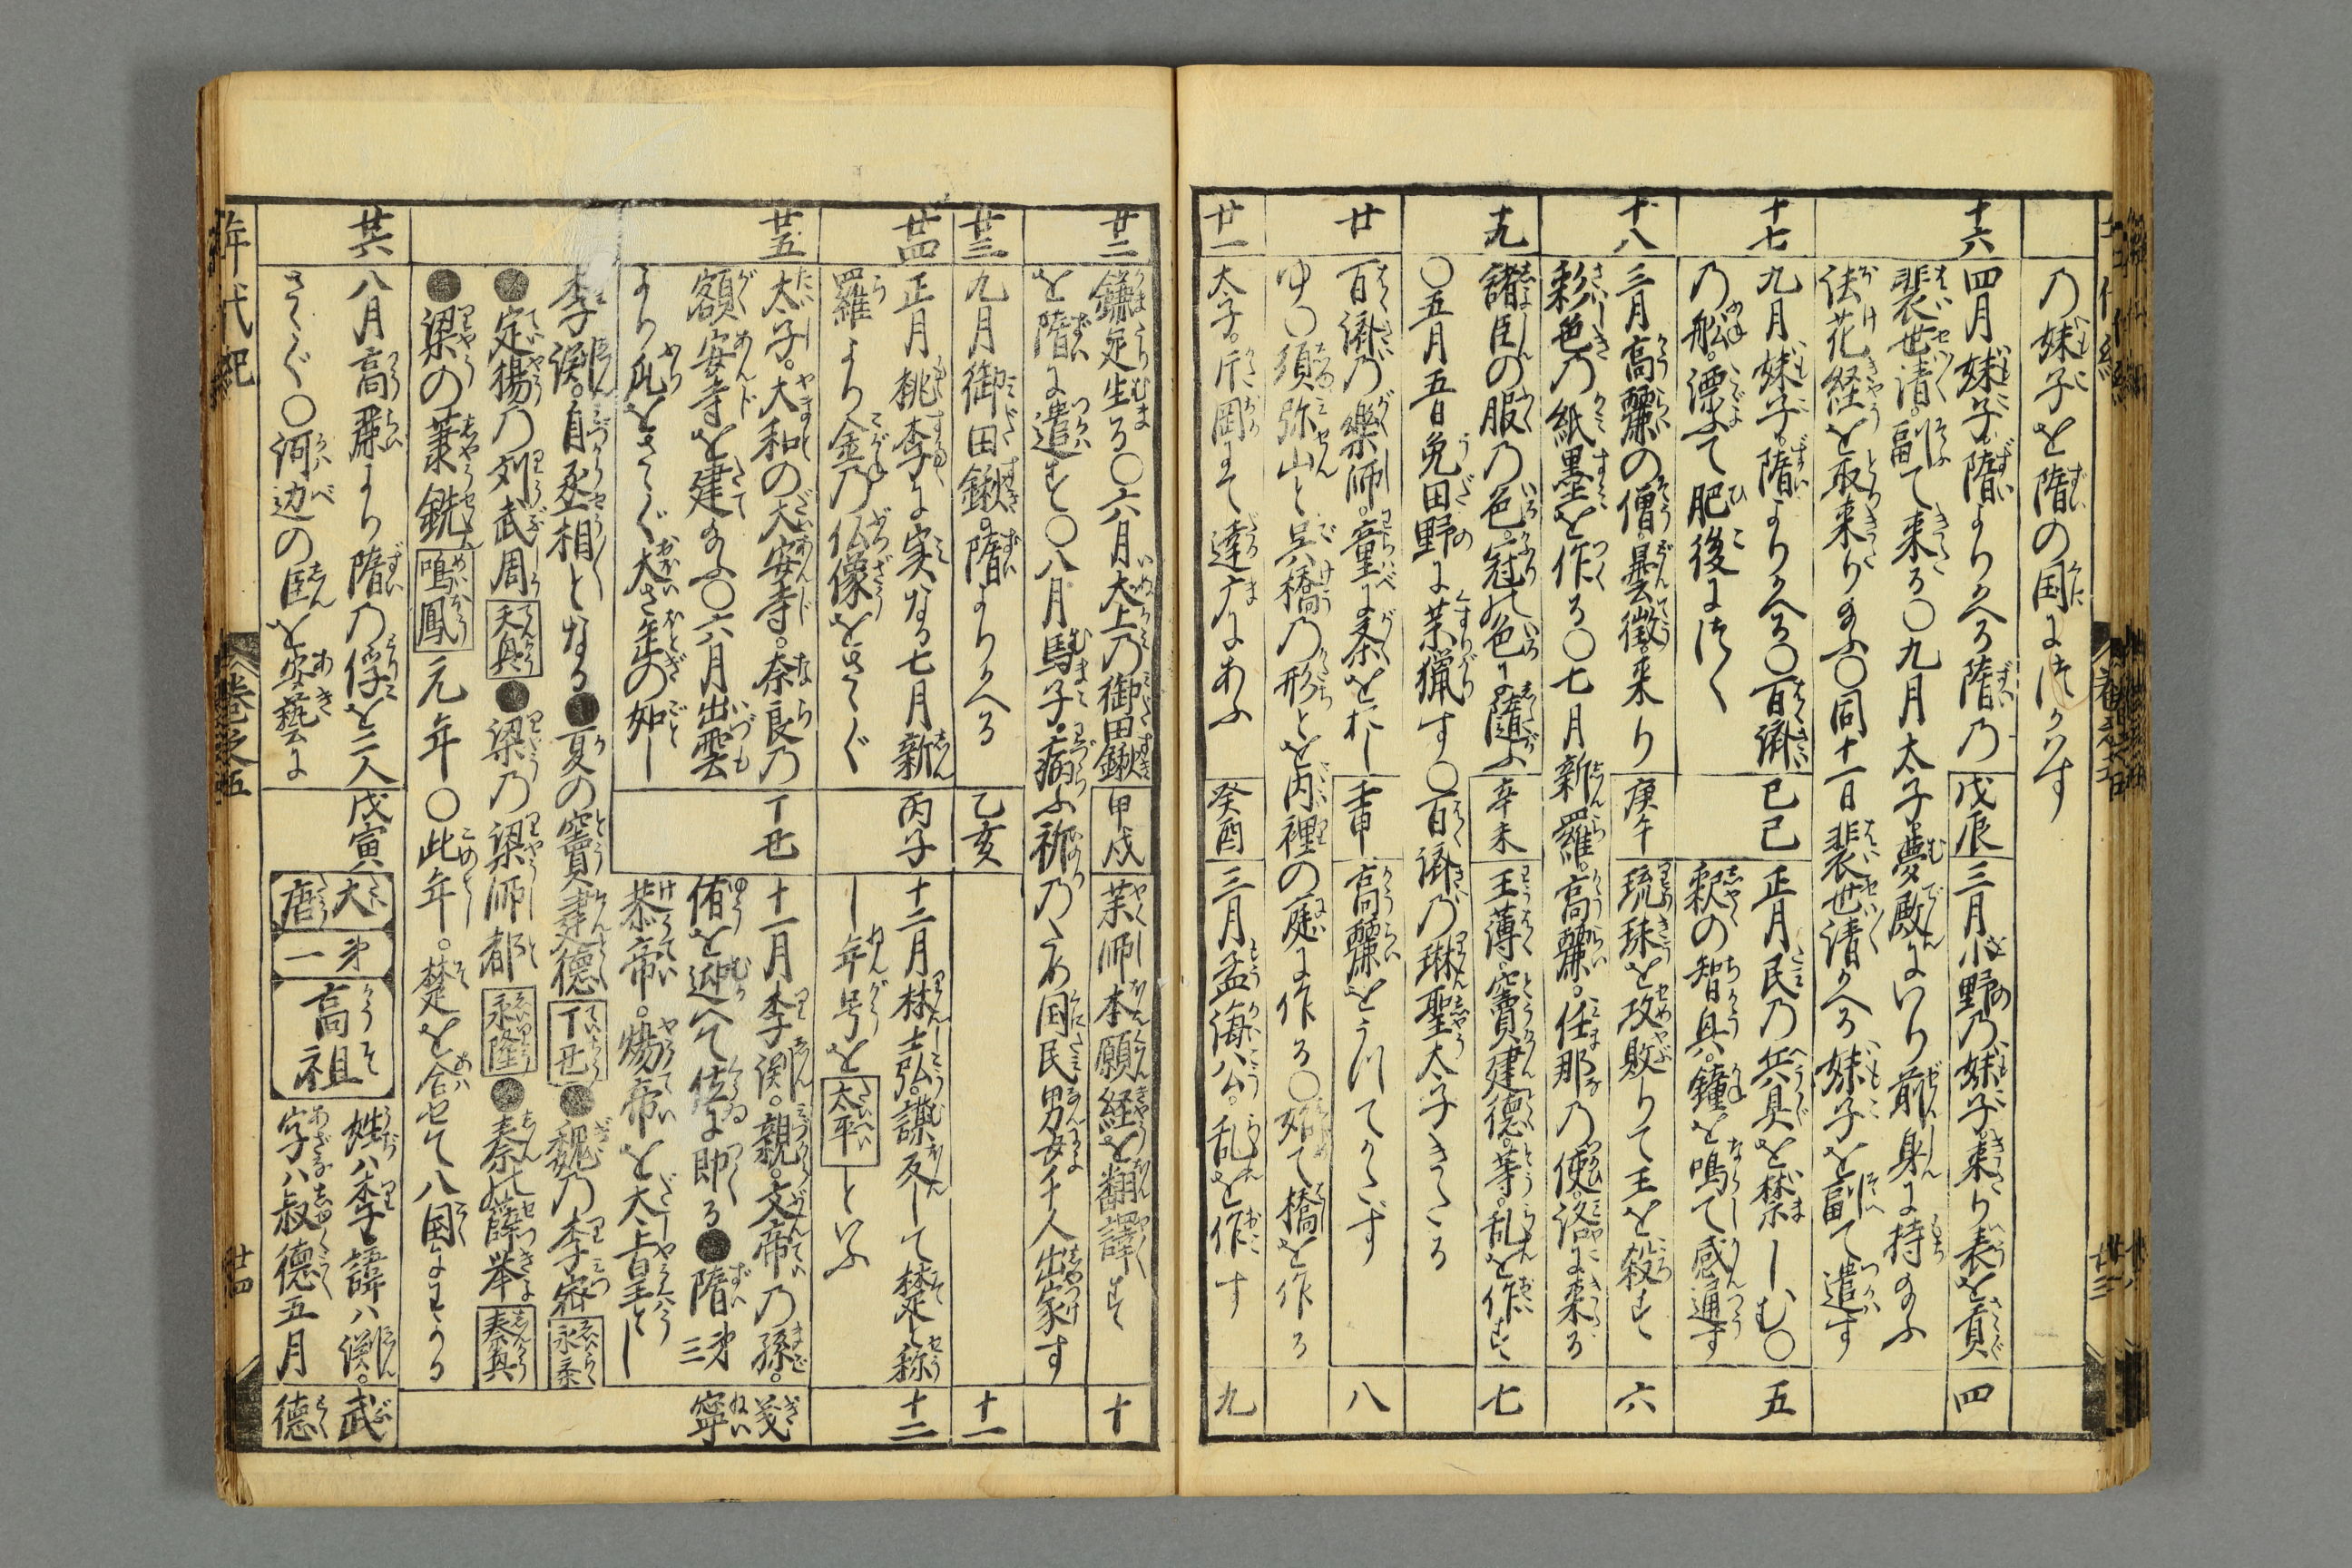 乃妹子を隋の国につかはす
十六
四月妹子隋よりかへる隋乃
裴世清。副て来る〇九月太子夢殿にいり前身に持のふ
法花経を取来り給ふ〇同十一日裴世清かへる妹子を副て遣す
戊辰
三月小野乃妹子。来り表を貢
四
十七
九月妹子。隋よりかへる〇百済
乃船。漂ふて肥後につく
己巳
正月民乃兵具を禁しむ〇
釈の智興。鐘を鳴て感通す
五
十八
三月高麗の僧。曇徴。来り
彩色乃紙墨を作る〇七月新羅。高麗。任那乃使。洛に来る
庚午
琉球を攻敗りて王を殺す
六
十九
諸臣の服乃色。冠の色に随ふ
〇五月五日兎田野に薬猟す〇百済乃琳聖太子きたる
辛未
王薄。竇建徳。等。乱を作す
七
廿
百済乃楽師。童に楽をおし
ゆ〇須弥山と呉橋乃形とを内裡の庭に作る〇始て橋を作る
壬申
高麗をうつてかたず
八
廿一
太子。片岡にて達广にあふ
癸酉
三月孟海公。乱を作す
九
廿二
鎌足生る〇六月犬上乃御田鍬
を隋に遣す〇八月馬子。病ふ祈乃ため国民男女千人出家す
甲戌
薬師本願経を翻譯す
十
廿三
九月御田鍬。隋よりかへる
乙亥
十一
廿四
正月桃李に実なる七月新
羅より金乃仏像をさゝぐ
丙子
十二月林士弘。謀反して楚と称
し年号を太平といふ
十二
廿五
太子。大和の大安寺。奈良乃
額安寺を建給ふ〇六月出雲
より瓜をさゝぐ大さ缶の如し
丁丑
十一月李渕。親。文帝乃孫。
侑を迎へて位に即る●隋第三
恭帝。煬帝を太上皇とし
義寧
李渕。自丞相となる●夏の竇建徳丁丑●魏乃李密永平
●定揚乃刘武周天興●梁乃梁師都永隆●秦の薛挙秦興
●梁の蕭銑鳴鳳元年〇此年。楚を合せて八国にわかる
廿六
八月高麗より隋乃俘を二人
さゝぐ〇河辺の臣を安藝に
戊寅
大唐
第一
高祖
姓ハ李諱ハ渕。
字ハ叔徳五月
武徳
年代紀
巻之五
廿四